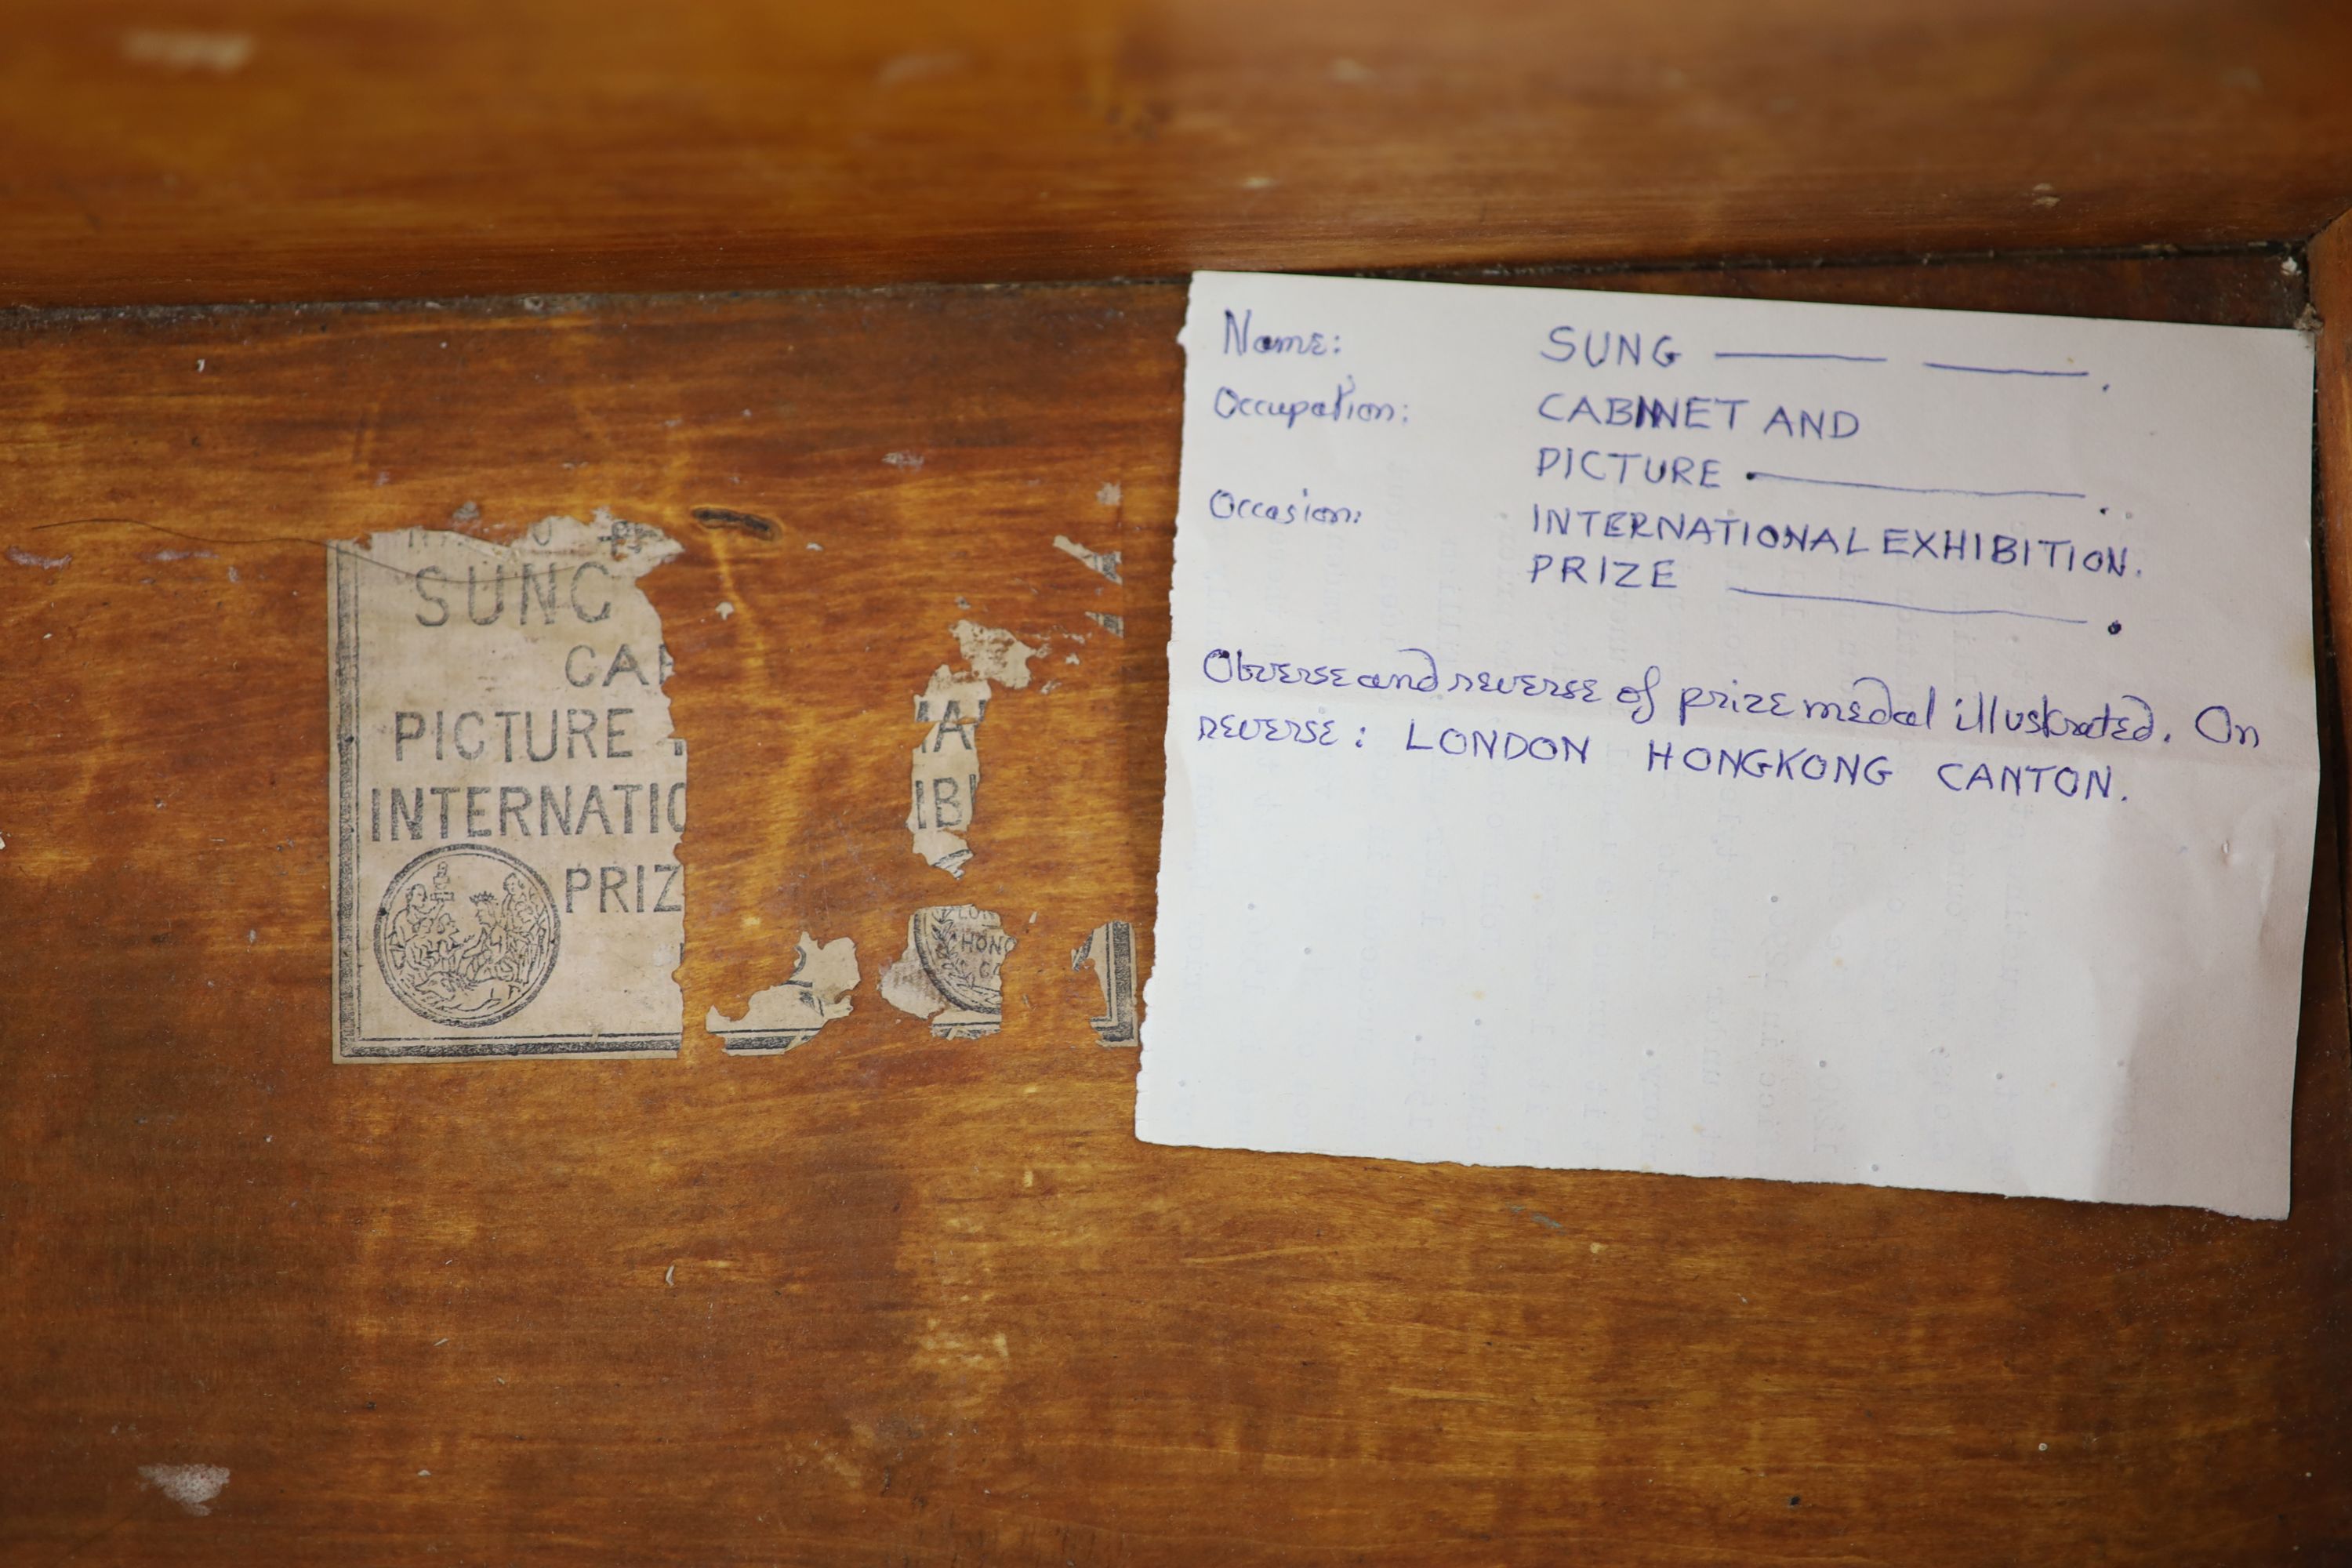 SUNG
CAB
PICTURE
INTERNATIO
PRIZ
MA
IBI
LON
HONG
CA
Name: SUNG
Occupation: CABINET AND
PICTURE
Occasion: INTERNATIONAL EXHIBITION.
PRIZE
Obverse and reverse of prize medal illustrated. On
reverse: LONDON HONGKONG CANTON.